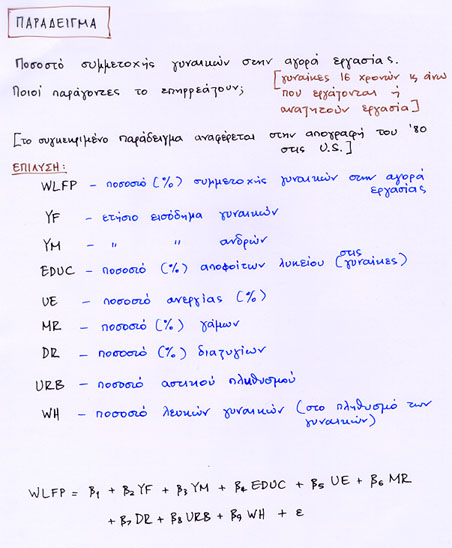 ΠΑΡΑΔΕΙΓΜΑ
Ποσοστό συμμετοχής γυναικών στην αγορά εργασίας.
Ποιοί παράγοντες το επηρρεάζουν; [γυναίκες 16 χρονών κ άνω
που εργάζονται ή
αναζητούν εργασία]
[το συγκεκριμένο παράδειγμα αναφέρεται στην απογραφή του '80
στις U.S.]
ΕΠΙΛΥΣΗ:
WLFP – ποσοστό (%) συμμετοχής γυναικών στην αγορά
εργασίας
YF – ετήσιο εισόδημα γυναικών
YM – " " ανδρών
EDUC – ποσοστό (%) αποφοίτων λυκείου (στις γυναίκες)
UE – ποσοστό ανεργίας (%)
MR – ποσοστό (%) γάμων
DR – ποσοστό (%) διαζυγίων
URB – ποσοστό αστικού πληθυσμού
WH – ποσοστό λευκών γυναικών (στο πληθυσμό των
γυναικών)
WLFP = β1 + β2 YF + β3 YM + β4 EDUC + β5 UE + β6 MR
+ β7 DR + β8 URB + β9 WH + ε